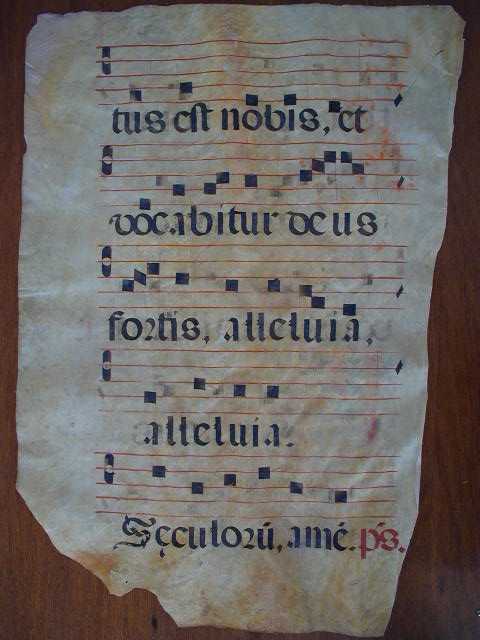 tus est nobis, et
vocabitur deus
fortis, alleluia,
alleluia.
Sęculorũ, amẽ. ps.